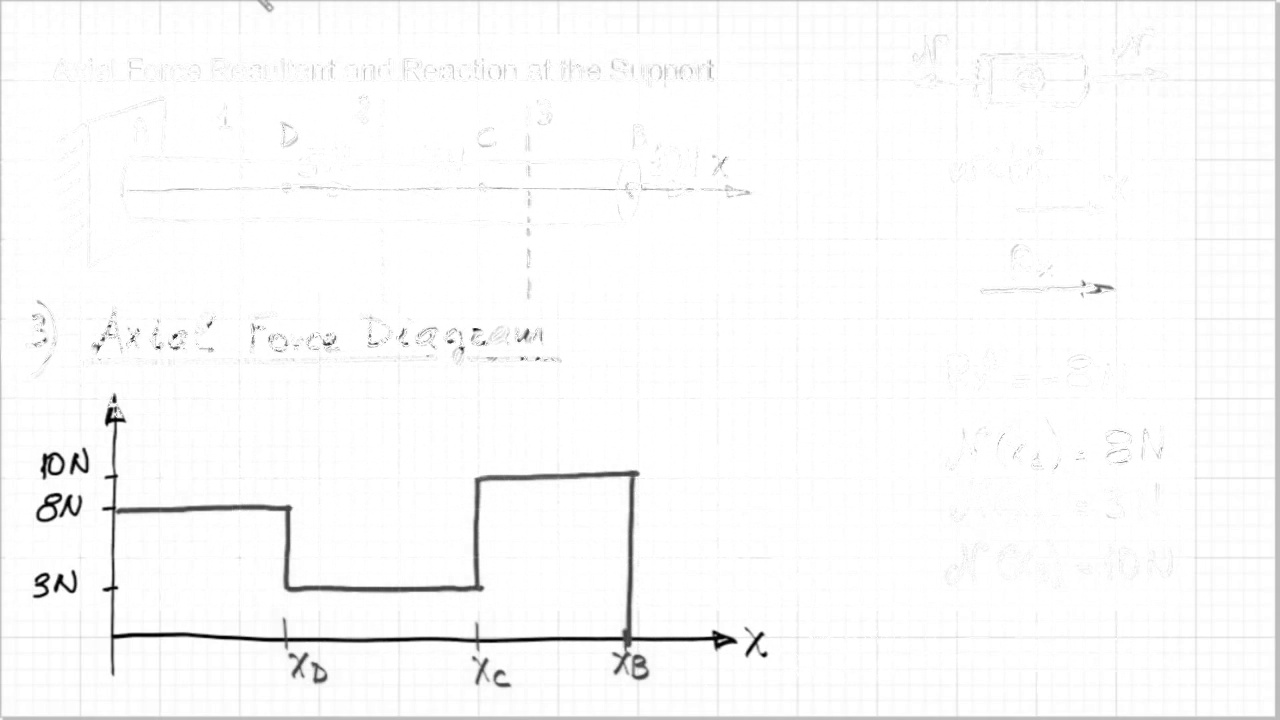 Axial Force Resultant and Reaction at the Support
1 2 3
A D C B
5N 7N 10N X
3) Axial Force Diagram
10N
8N
3N
XD XC XB X
N N
X
Rx
= -8N
N(x1) = 8N
= 3N
= 10N